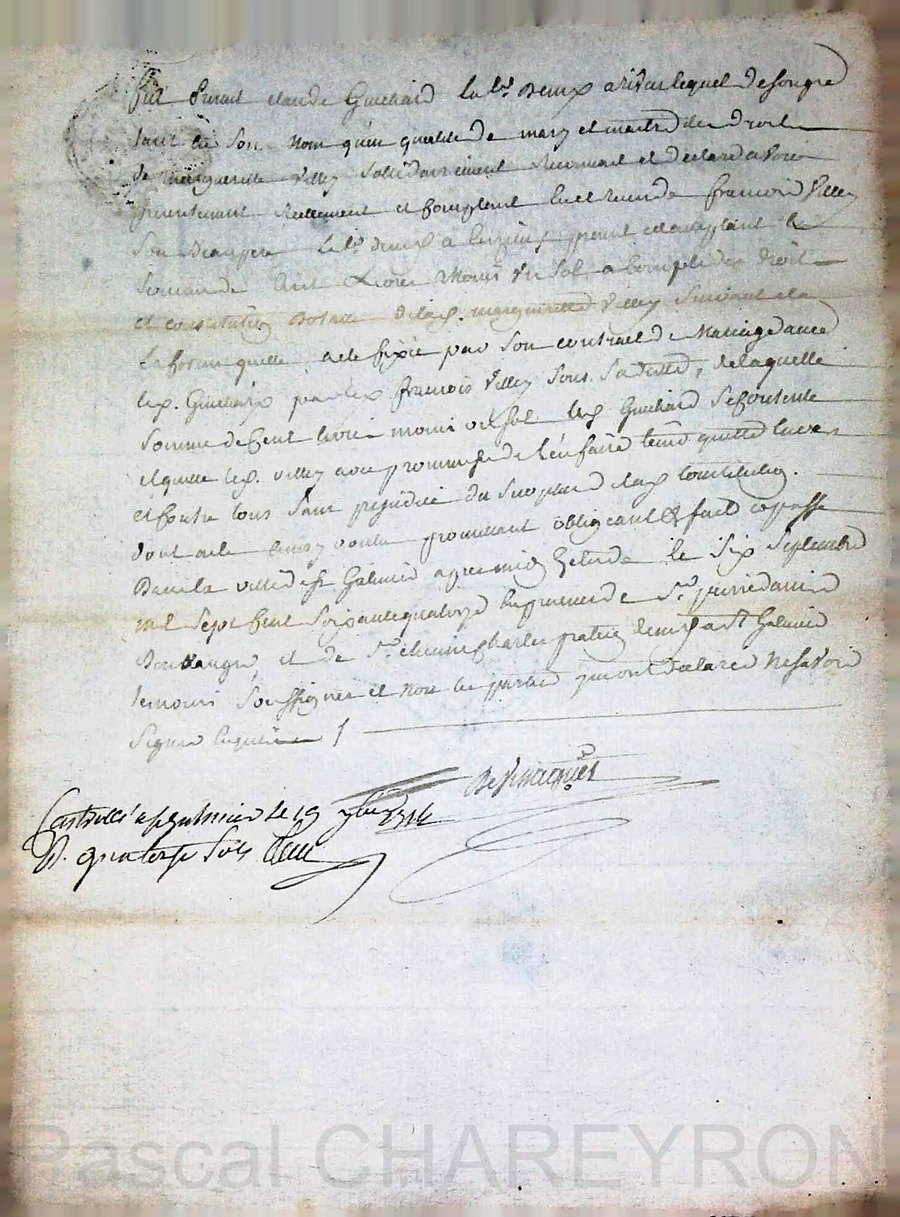 fut présent claude Guichard lab.r demeu. a rivas lequel de son gré
tant en son nom qu'en qualité de mary et maitre des droits
de marguerite Villey solidairement reconnait et déclare avoir
présentement réellement et comptant reçu de françois Villey
son beaupere lab.r demeu. a présent et acceptant la
somme de Cent Livres moins un sol a compte des droits
et constitution dotalle de lad. marguerite Villey suivant
la forme quelle a été fixée par son contract de Mariage d'avec
led. Guichard par led. françois Villey sous sa datte, de laquelle
somme de Cent livres moins un sol led. Guichard se contente
et quitte led. Villey avec promesse de l'en faire tenir quitte envers
et contre tous sans préjudice du surplus de lad. constitution.
dont acte ainsy voulu promettant obligeant & fait et passé
dans la ville de st Galmier apres midy Etude le six septembre
mil sept Cent soixante quatorze en presence de Sr. pierre
Boulanger, et de Sr. etienne Charles praticien demeurant a st Galmier
temoins soussignés et non les parties qui ont déclaré ne savoir
signer enquis /
Con.llé a st galmier le 19 7bre 1774
R. quatorze sols
Pascal CHAREYRON